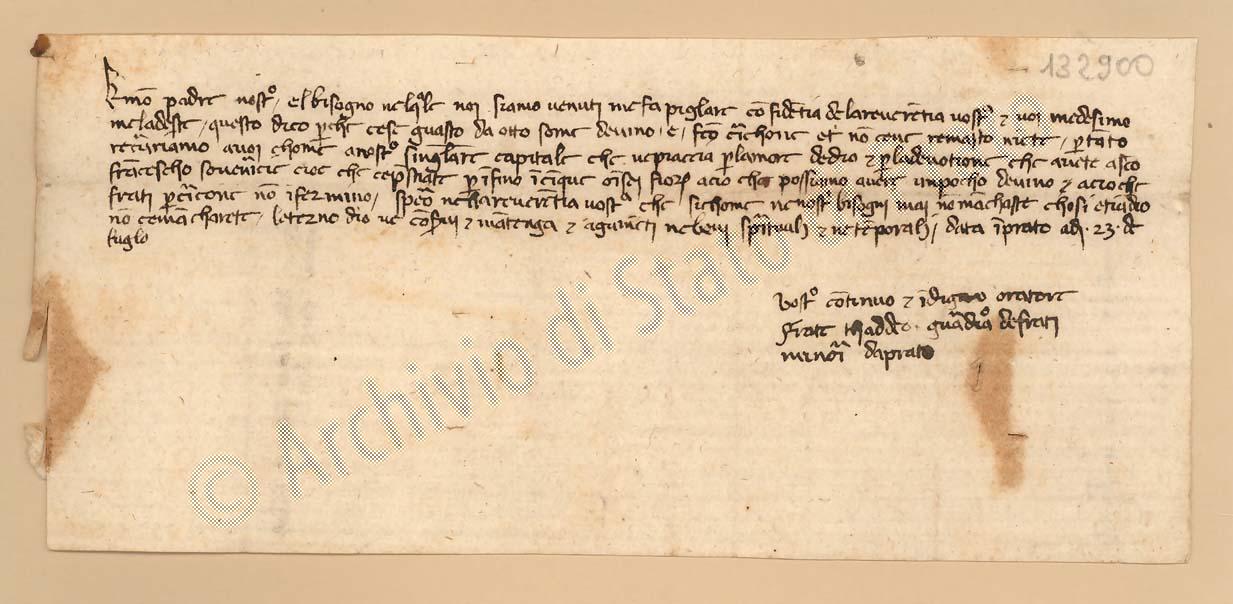 132900
Kmo padre nostro, el bisogno nel quale noi siamo venuti me fa piglare confidentia de la reverentia vostra et voi medesimo
me ladeste, questo dico perche cese guasto da otto some de vino, e, fco non cene remasto niete, pertato
recuriamo avoi chome anostro singulare capitale che vepiaccia per lamore dedio et per ladevotione che avete asco
francescho sovenircie cioe che cepstiate per ifino icinque osei fiorini acio che possiamo avere unpocho devino et acioche
frati non ifermino, spero nelhareverentia vostra che sichome nenostri bisogni mai nomachaste chosi etiadio
no cemacharete, leterno dio ve conservi et matenga et agumeti nebeni spirituali et netemporali, data iprato adi .23. de
luglo
Vostro continuo et idigno oratore
frate thaddeo guardiano defrati
minori daprato
© Archivio di Stato